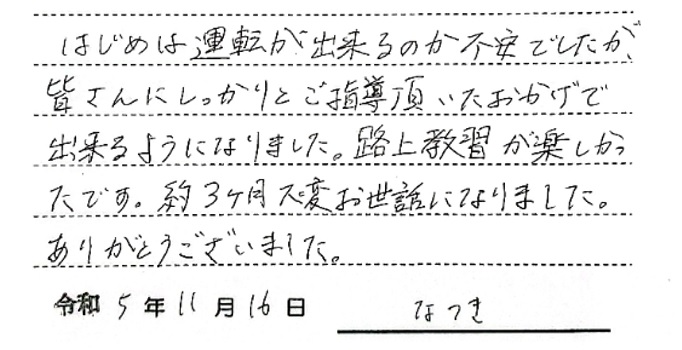 はじめは運転が出来るのか不安でしたが、
皆さんにしっかりとご指導頂いたおかげで
出来るようになりました。路上教習が楽しかっ
たです。約3ヶ月大変お世話になりました。
ありがとうございました。
令和5年11月16日 なつき